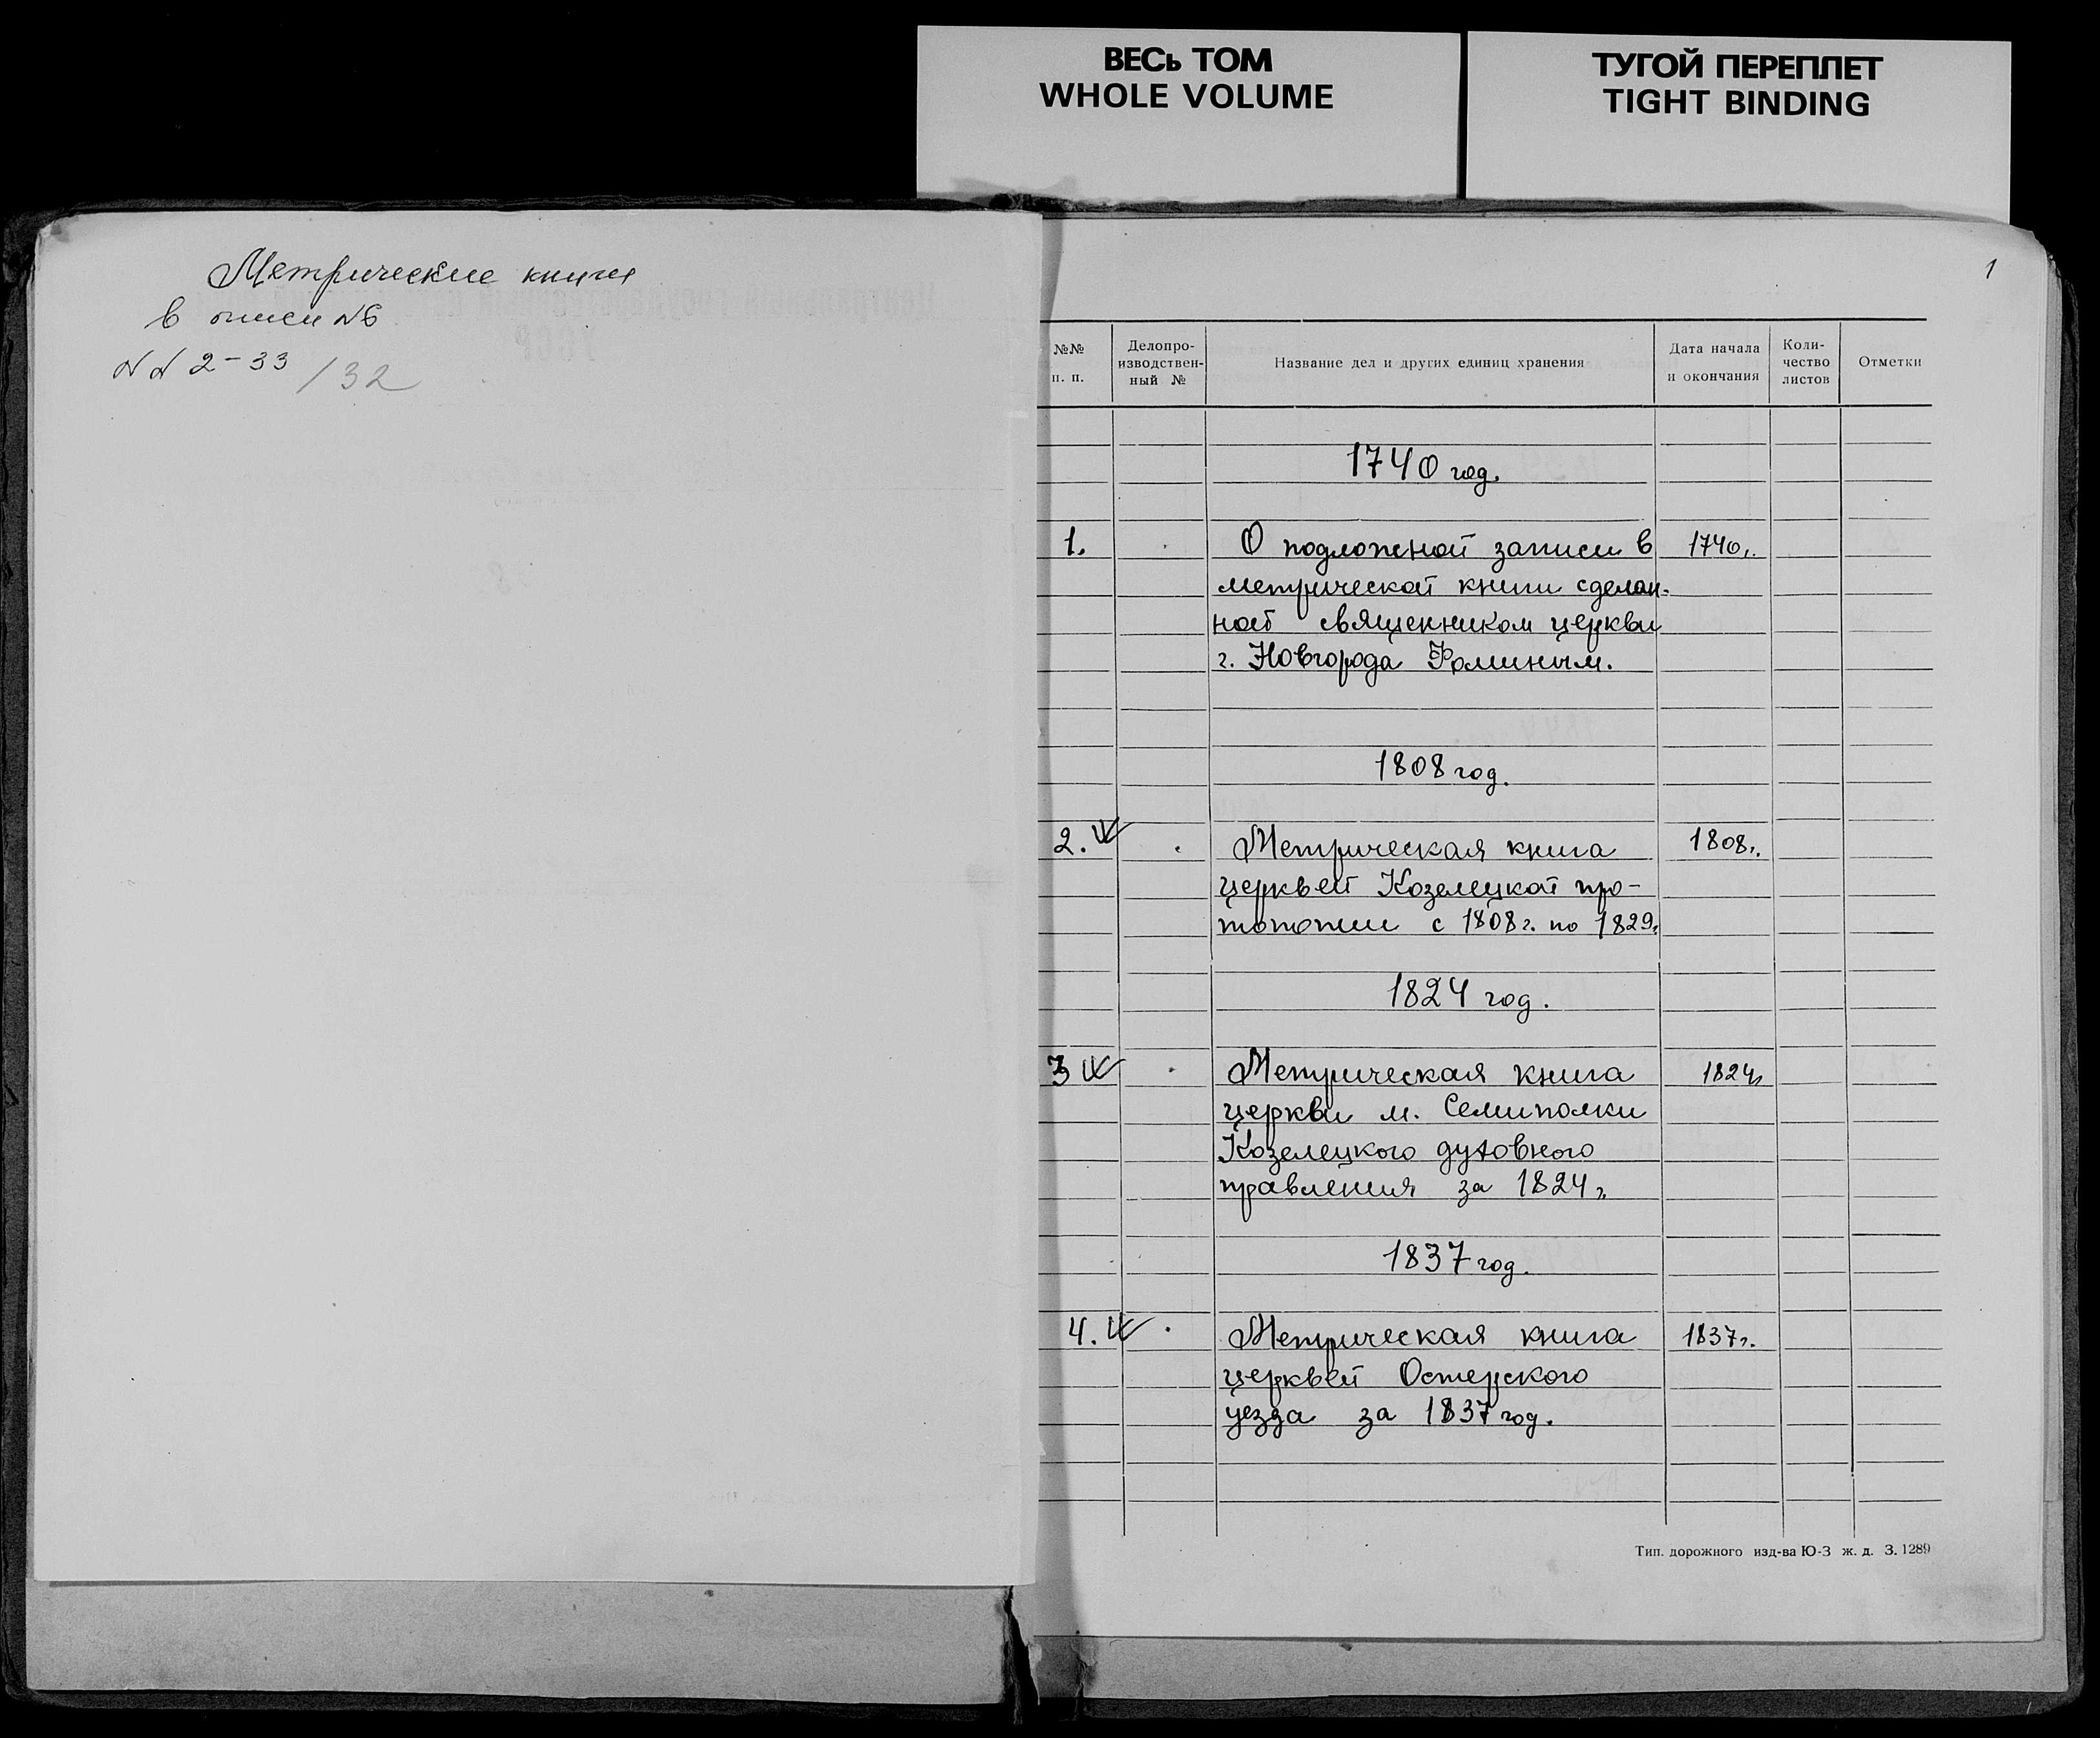 ВЕСЬ ТОМ
WHOLE VOLUME
ТУГОЙ ПЕРЕПЛЕТ
TIGHT BINDING
Метрические книги
в описи №6
№№ 2-33 / 32
1
№№ п. п.
Делопро-изводствен-ный №
Название дел и других единиц хранения
Дата начала и окончания
Коли-чество листов
Отметки
1740 год.
1. О подложной записи в 1740г.
метрической книги сделан-
ной священником церкви
г. Новгорода Фоминым.
1808 год.
2. Метрическая книга 1808г.
церквей Козелецкой про-
топопии с 1808г. по 1829г.
1824 год.
3 Метрическая книга 1824г
церкви м. Семиполки
Козелецкого духовного
правления за 1824г.
1837 год.
4. Метрическая книга 1837г.
церквей Остерского
уезда за 1837 год.
Тип. дорожного изд-ва Ю-З ж. д. З. 1289